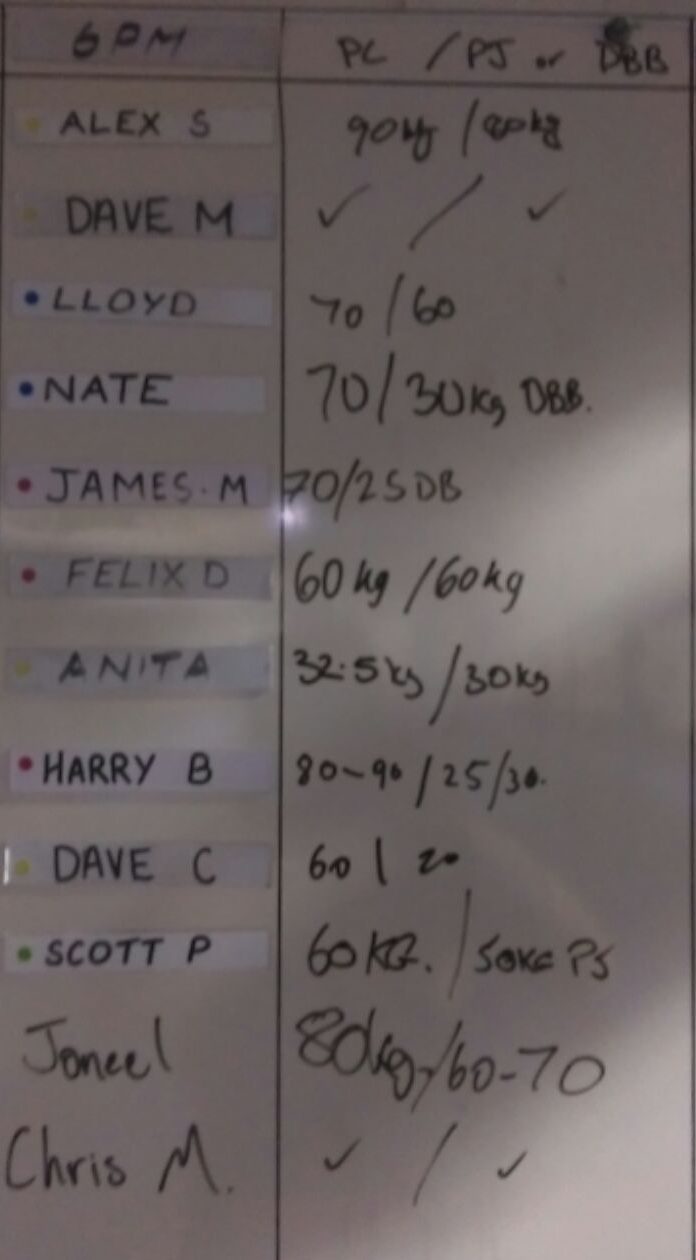 6PM PC / PJ or DBB
ALEX S 90kg / 80kg
DAVE M ✓ / ✓
LLOYD 70 / 60
NATE 70 / 30kg DBB.
JAMES. M 70/25 DB
FELIX D 60 kg / 60kg
ANITA 32.5kg / 30kg
HARRY B 80-90 / 25/30.
DAVE C 60 | 20
SCOTT P 60KG. / 50KG PJ
Joneel 80kg / 60-70
Chris M. ✓ / ✓